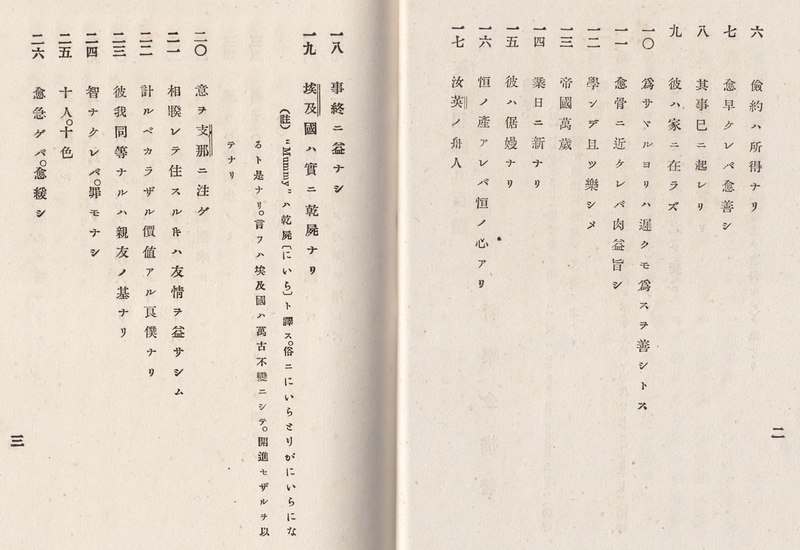 六 儉約ハ所得ナリ
七 愈早ケレバ愈善シ
八 其事巳ニ起レリ
九 彼ハ家ニ在ラズ
一〇 爲サヾルヨリハ遲クモ爲スヲ善シトス
一一 愈骨ニ近ケレバ肉益旨シ
一二 學ンデ且ツ樂シメ
一三 帝國萬歲
一四 業日ニ新ナリ
一五 彼ハ倨嫚ナリ
一六 恒ノ產アレバ恒ノ心アリ
一七 汝英ノ舟人
二
一八 事終ニ益ナシ
一九 埃及國ハ實ニ乾屍ナリ
(註) "Mummy" ハ乾屍〔にいら〕ト譯ス。俗ニにいらとりがにいらにな
るト是ナリ。言フハ埃及國ハ萬古不變ニシテ。開進セザルヲ以
テナリ
二〇 意ヲ支那ニ注ゲ
二一 相睽レテ住スルキハ友情ヲ益サシム
二二 計ルベカラザル價値アル良僕ナリ
二三 彼我同等ナルハ親友ノ基ナリ
二四 智ナケレバ。罪モナシ
二五 十人。十色
二六 愈急ゲバ。愈緩シ
三